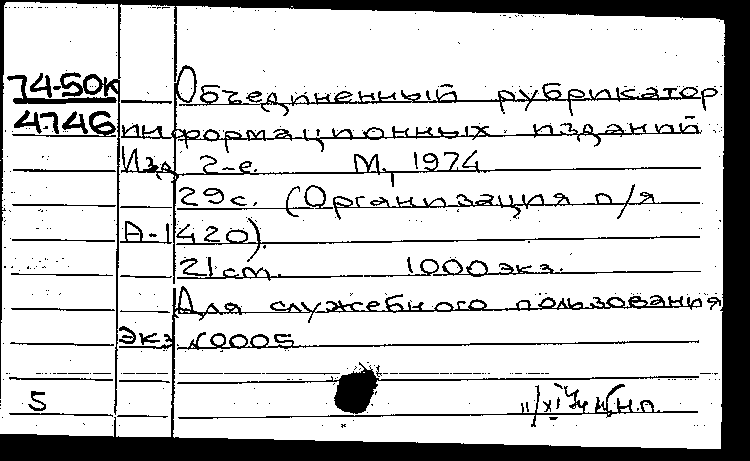 74-50к Объединенный рубрикатор
4746 информационных изданий
Изд 2-е. М., 1974
29с. (Организация п/я
А-1420).
21см. 1000экз.
Для служебного пользования
Экз №0005
5 11/XI 74